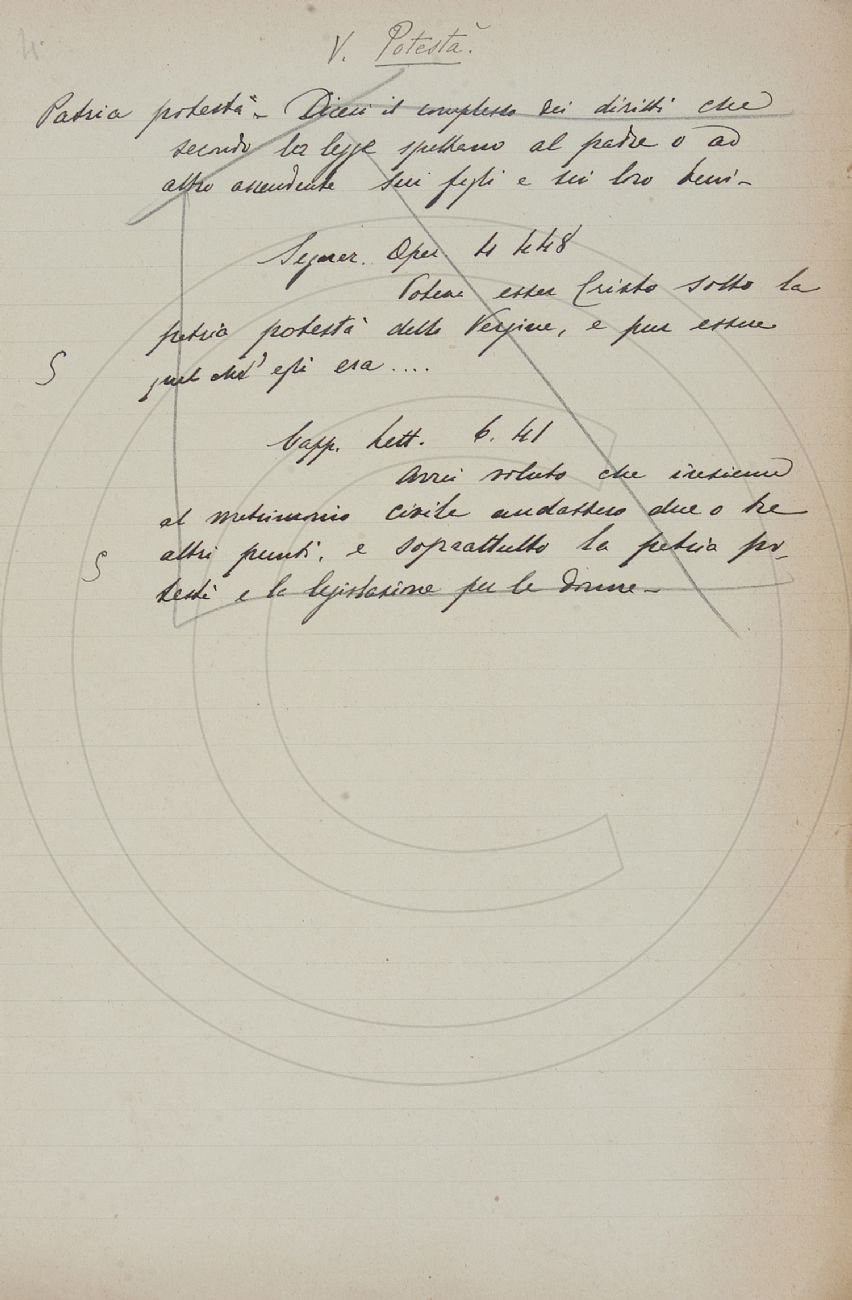 4.
V. Potestà.
Patria potestà - Dicesi il complesso dei diritti che
secondo la legge spettano al padre o ad
altro ascendente sui figli e sui loro beni -
Segner. Oper. 4 448
Poteva esser Cristo sotto la
patria potestà della Vergine, e pur essere
quel ch' egli era ....
Capp. Lett. 6. 41
Avrei voluto che insieme
al matrimonio civile andassero due o tre
altri punti, e soprattutto la patria po-
testà e la legislazione per le donne -